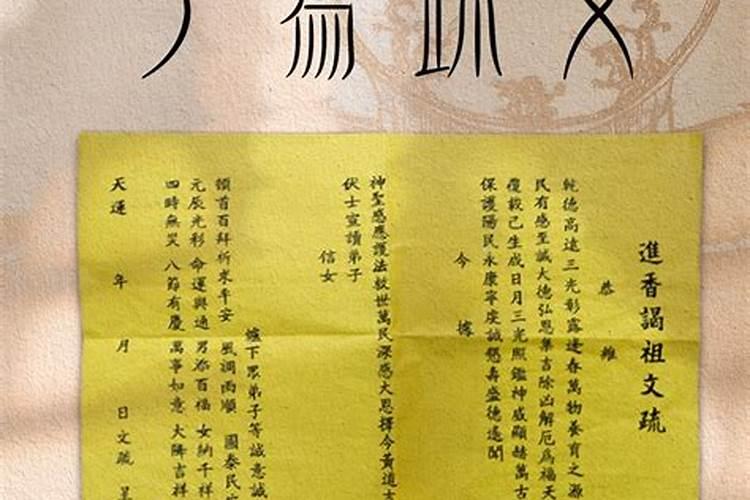 進香謁祖文疏
恭維
乾德高遠三光彰露逢春萬物養育之源
民有感至誠大德弘恩集吉除凶解厄為福天
覆載己生成日月三光照鑑神威顯赫萬古
保護陽民永康寧虔誠懇壽盛德遙聞
今據
神聖感應護法救世萬民深感大恩擇今黃道吉
伏士宣讀弟子
信女
爐下眾弟子等誠意誠
頓首百拜祈求平安 風調雨順 國泰民
元辰光彩 命運與通 男添百福 女納千祥
四時無災 八節有慶 萬事如意 大降吉祥
天運 年 月 日文疏